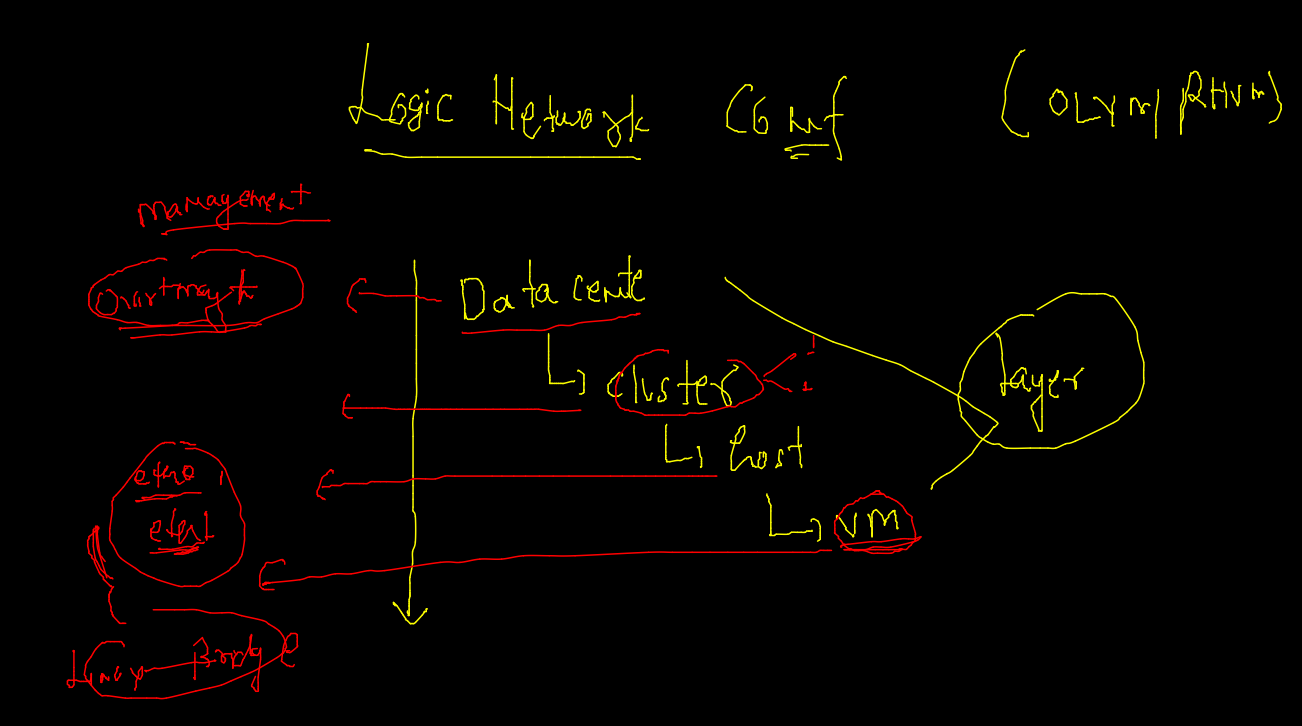 Logic Network Conf (OLVM / RHVM)
management
ovirtmgmt
Data cente
cluster
layer
host
eth0
eth1
VM
Linux Bridge